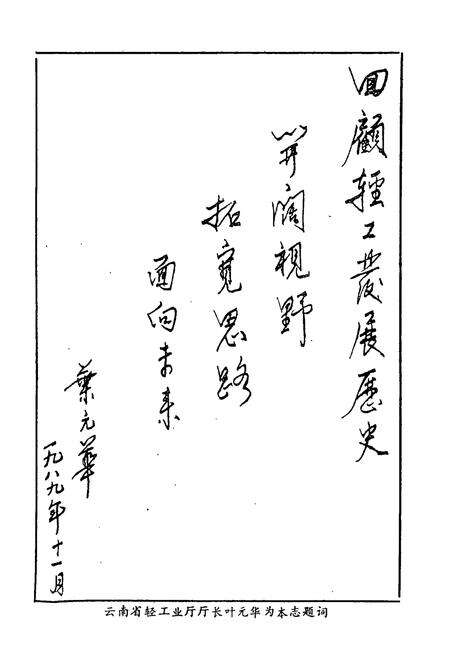 回顧輕工發展歷史
開阔視野
拓寬思路
面向未来
葉元華
一九八九年十一月
云南省轻工业厅厅长叶元华为本志题词